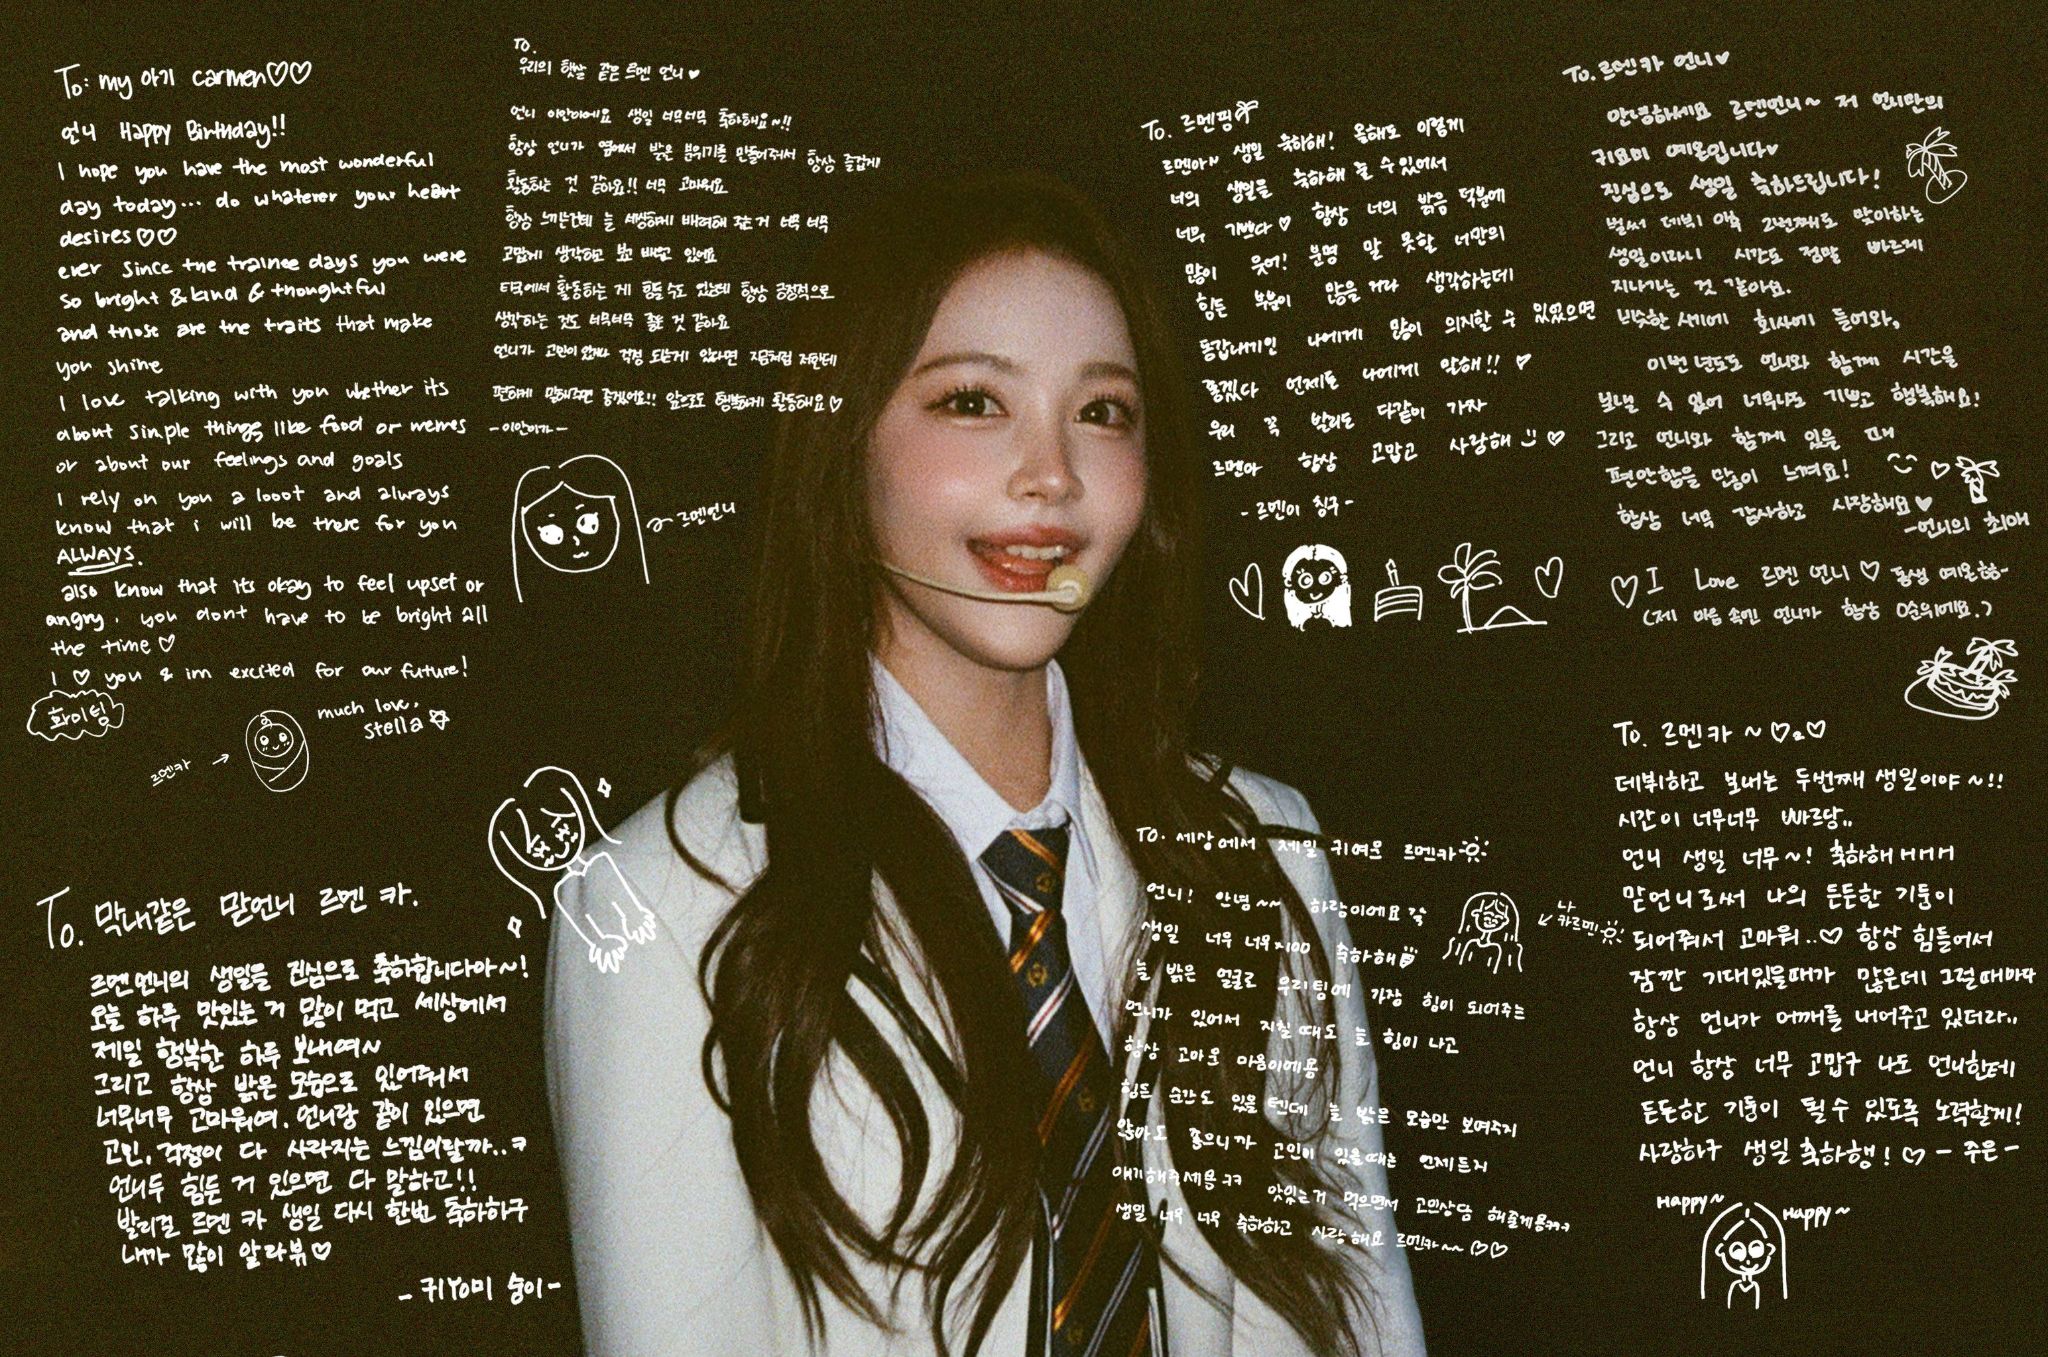 To: my 아기 carmen♡♡
언니 Happy Birthday!!
I hope you have the most wonderful
day today... do whatever your heart
desires♡♡
ever since the trainee days you were
so bright & kind & thoughtful
and those are the traits that make
you shine
I love talking with you whether its
about simple things like food or memes
or about our feelings and goals
I rely on you a looot and always
know that i will be there for you
ALWAYS.
also know that its okay to feel upset or
angry. you dont have to be bright all
the time♡
I ♡ you & im excited for our future!
화이팅
much love,
stella☆
르멘카 →
To.
우리의 햇살 같은 르멘 언니♥
언니 이안이에요 생일 너무너무 축하해요~!!
항상 언니가 옆에서 밝은 분위기를 만들어줘서 항상 즐겁게
활동하는 것 같아요!! 너무 고마워요
항상 느끼는건데 늘 세심하게 배려해 주는거 너무 너무
고맙게 생각하고 보고 배우고 있어요
타국에서 활동하는 게 힘들 수도 있는데 항상 긍정적으로
생각하는 것도 너무너무 좋은 것 같아요
언니가 고민이 있거나 걱정 되는게 있다면 지금처럼 저한테
편하게 말해주면 좋겠어요!! 앞으로도 행복하게 활동해요♡
-이안이가-
르멘언니
To. 르멘핑
르멘아~ 생일 축하해! 올해도 이렇게
너의 생일을 축하해 줄 수 있어서
너무 기쁘다♡ 항상 너의 밝음 덕분에
많이 웃어! 분명 말 못할 너만의
힘든 부분이 많을거라 생각하는데
동갑내기인 나에게 많이 의지할 수 있었으면
좋겠다 언제든 나에게 말해!! ♡
우리 꼭 발리도 다같이 가자
르멘아 항상 고맙고 사랑해 ♡
-르멘이 칭구-
To. 르멘카 언니♥
안녕하세요 르멘언니~ 저 언니만의
귀요미 예온입니다♥
진심으로 생일 축하드립니다!
벌써 데뷔 이후 2번째로 맞이하는
생일이라니 시간도 정말 빠르게
지나가는 것 같아요.
비슷한 시기에 회사에 들어와,
이번 년도도 언니와 함께 시간을
보낼 수 있어 너무나도 기쁘고 행복해요!
그리고 언니와 함께 있을 때
편안함을 많이 느껴요!
항상 너무 감사하고 사랑해요♥
-언니의 최애
♡ I Love 르멘 언니♡ 동생 예온
(제 마음 속엔 언니가 항상 0순위에요.)
To. 막내같은 맏언니 르멘 카.
르멘언니의 생일을 진심으로 축하합니다아~!
오늘 하루 맛있는거 많이 먹고 세상에서
제일 행복한 하루 보내여~
그리고 항상 밝은 모습으로 있어줘서
너무너무 고마워여. 언니랑 같이 있으면
고민, 걱정이 다 사라지는 느낌이랄까..ㅋ
언니두 힘든 거 있으면 다 말하고!!
발리걸 르멘 카 생일 다시 한번 축하하구
내가 많이 알라뷰♡
-귀Yomi 숭이-
To. 세상에서 제일 귀여운 르멘카
언니! 안녕~~ 하람이에요
생일 너무 너무x100 축하해
나
카르멘
늘 밝은 얼굴로 우리팀에 가장 힘이 되어주는
언니가 있어서 지칠때도 늘 힘이 나고
항상 고마운 마음이에용
힘든 순간도 있을텐데 늘 밝은 모습만 보여주지
않아도 좋으니까 고민이 있을때는 언제든지
얘기해주세용ㅋㅋ 맛있는거 먹으면서 고민상담 해줄게용ㅋㅋㅋ
생일 너무 너무 축하하고 사랑해요 르멘카~~♡♡
To. 르멘카 ~♡
데뷔하고 보내는 두번째 생일이야~!!
시간이 너무너무 빠르당..
언니 생일 너무~! 축하해ㅐㅐㅐ
맏언니로써 나의 든든한 기둥이
되어줘서 고마워..♡ 항상 힘들어서
잠깐 기대있을때가 많은데 그럴때마다
항상 언니가 어깨를 내어주고 있더라..
언니 항상 너무 고맙구 나도 언니한테
든든한 기둥이 될 수 있도록 노력할게!
사랑하구 생일 축하행!♡ -주은-
Happy~
Happy~